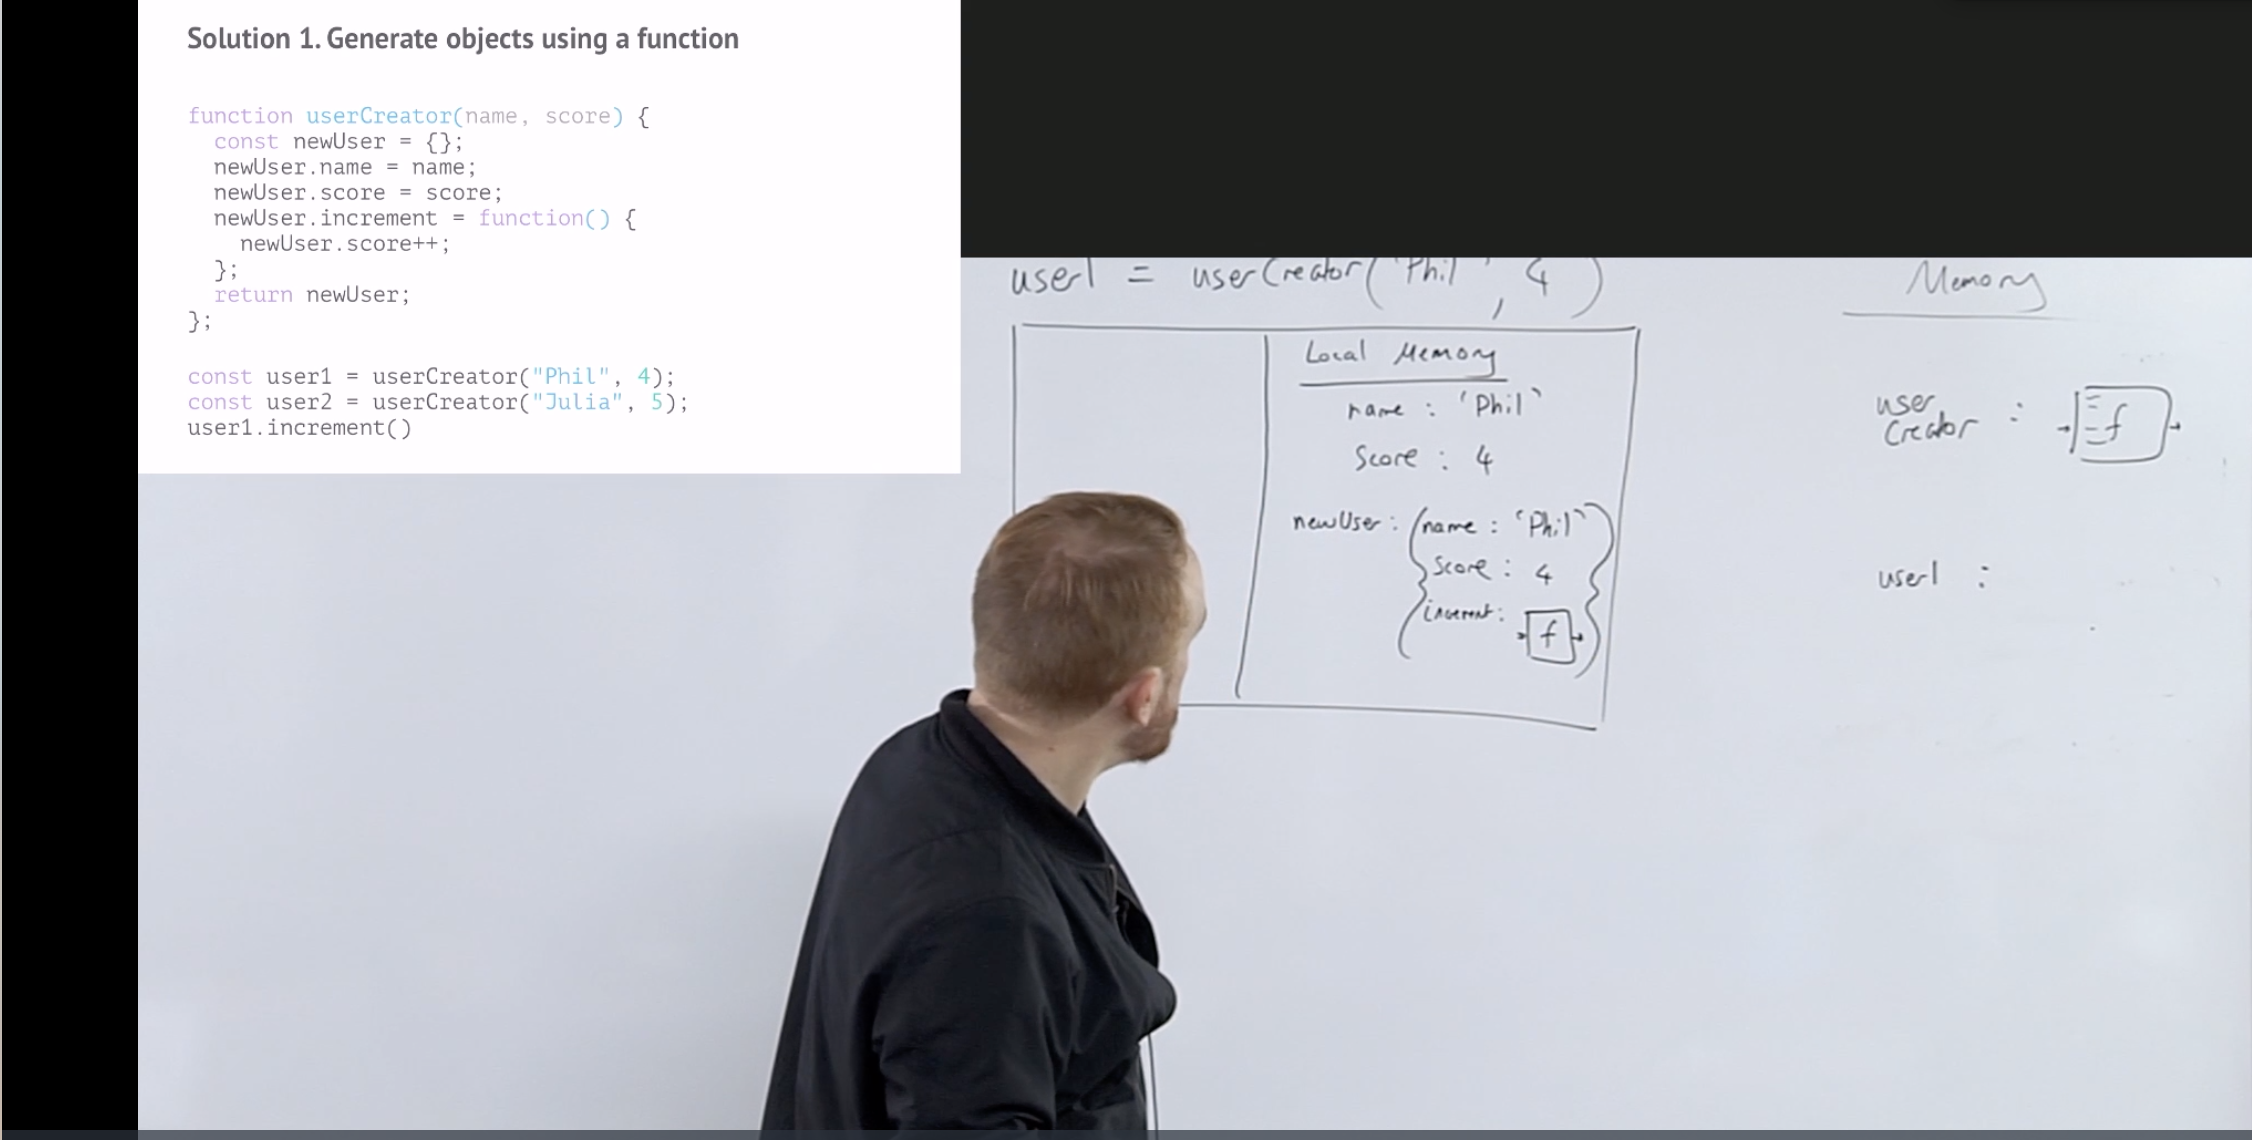 Solution 1. Generate objects using a function
function userCreator(name, score) {
  const newUser = {};
  newUser.name = name;
  newUser.score = score;
  newUser.increment = function() {
    newUser.score++;
  };
  return newUser;
};
const user1 = userCreator("Phil", 4);
const user2 = userCreator("Julia", 5);
user1.increment()
user1 = userCreator('Phil', 4)
Local Memory
name : 'Phil'
Score : 4
newUser : { name : 'Phil'
Score : 4
increment : f }
Memory
user
Creator : f
user1 :